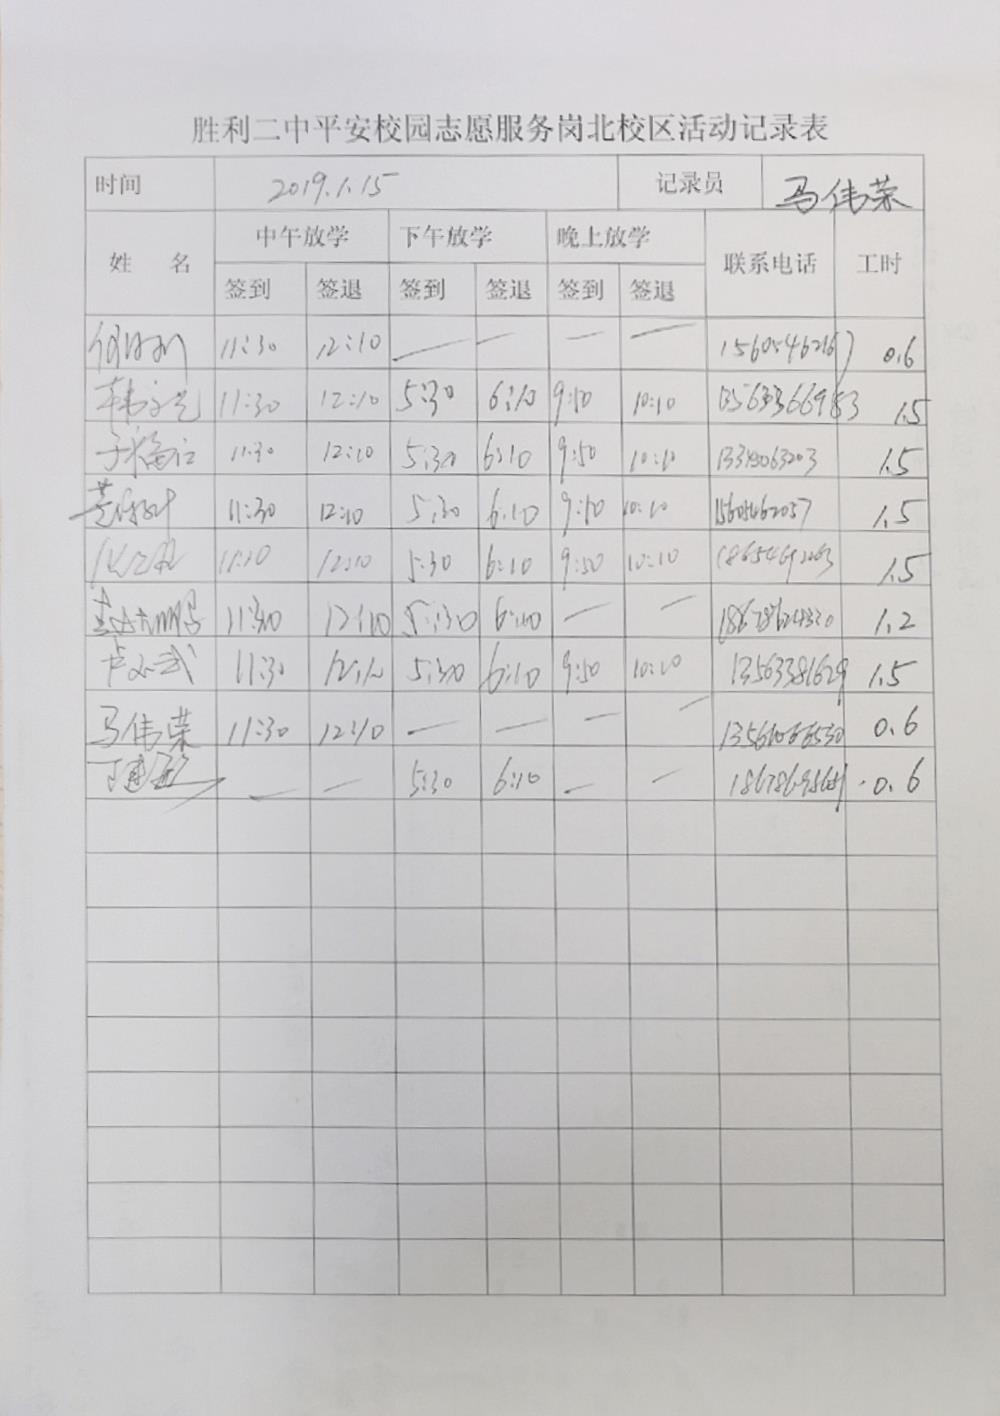 胜利二中平安校园志愿服务岗北校区活动记录表
时间 2019.1.15 记录员 马伟荣
姓 名 中午放学 下午放学 晚上放学 联系电话 工时
签到 签退 签到 签退 签到 签退
11:30 12:10 — — — — 15605462167 0.6
韩 11:30 12:10 5:30 6:10 9:50 10:10 13563366983 1.5
11:30 12:10 5:30 6:10 9:50 10:10 1.5
11:30 12:10 5:30 6:10 9:50 10:10 15605462057 1.5
12:10 5:30 6:10 9:50 10:10 1.5
11:30 12:10 5:30 6:10 — — 1.2
卢 武 11:30 12:10 5:30 6:10 9:50 10:10 13563381629 1.5
马伟荣 11:30 12:10 — — — — 0.6
丁建 — — 5:30 6:10 — — 0.6